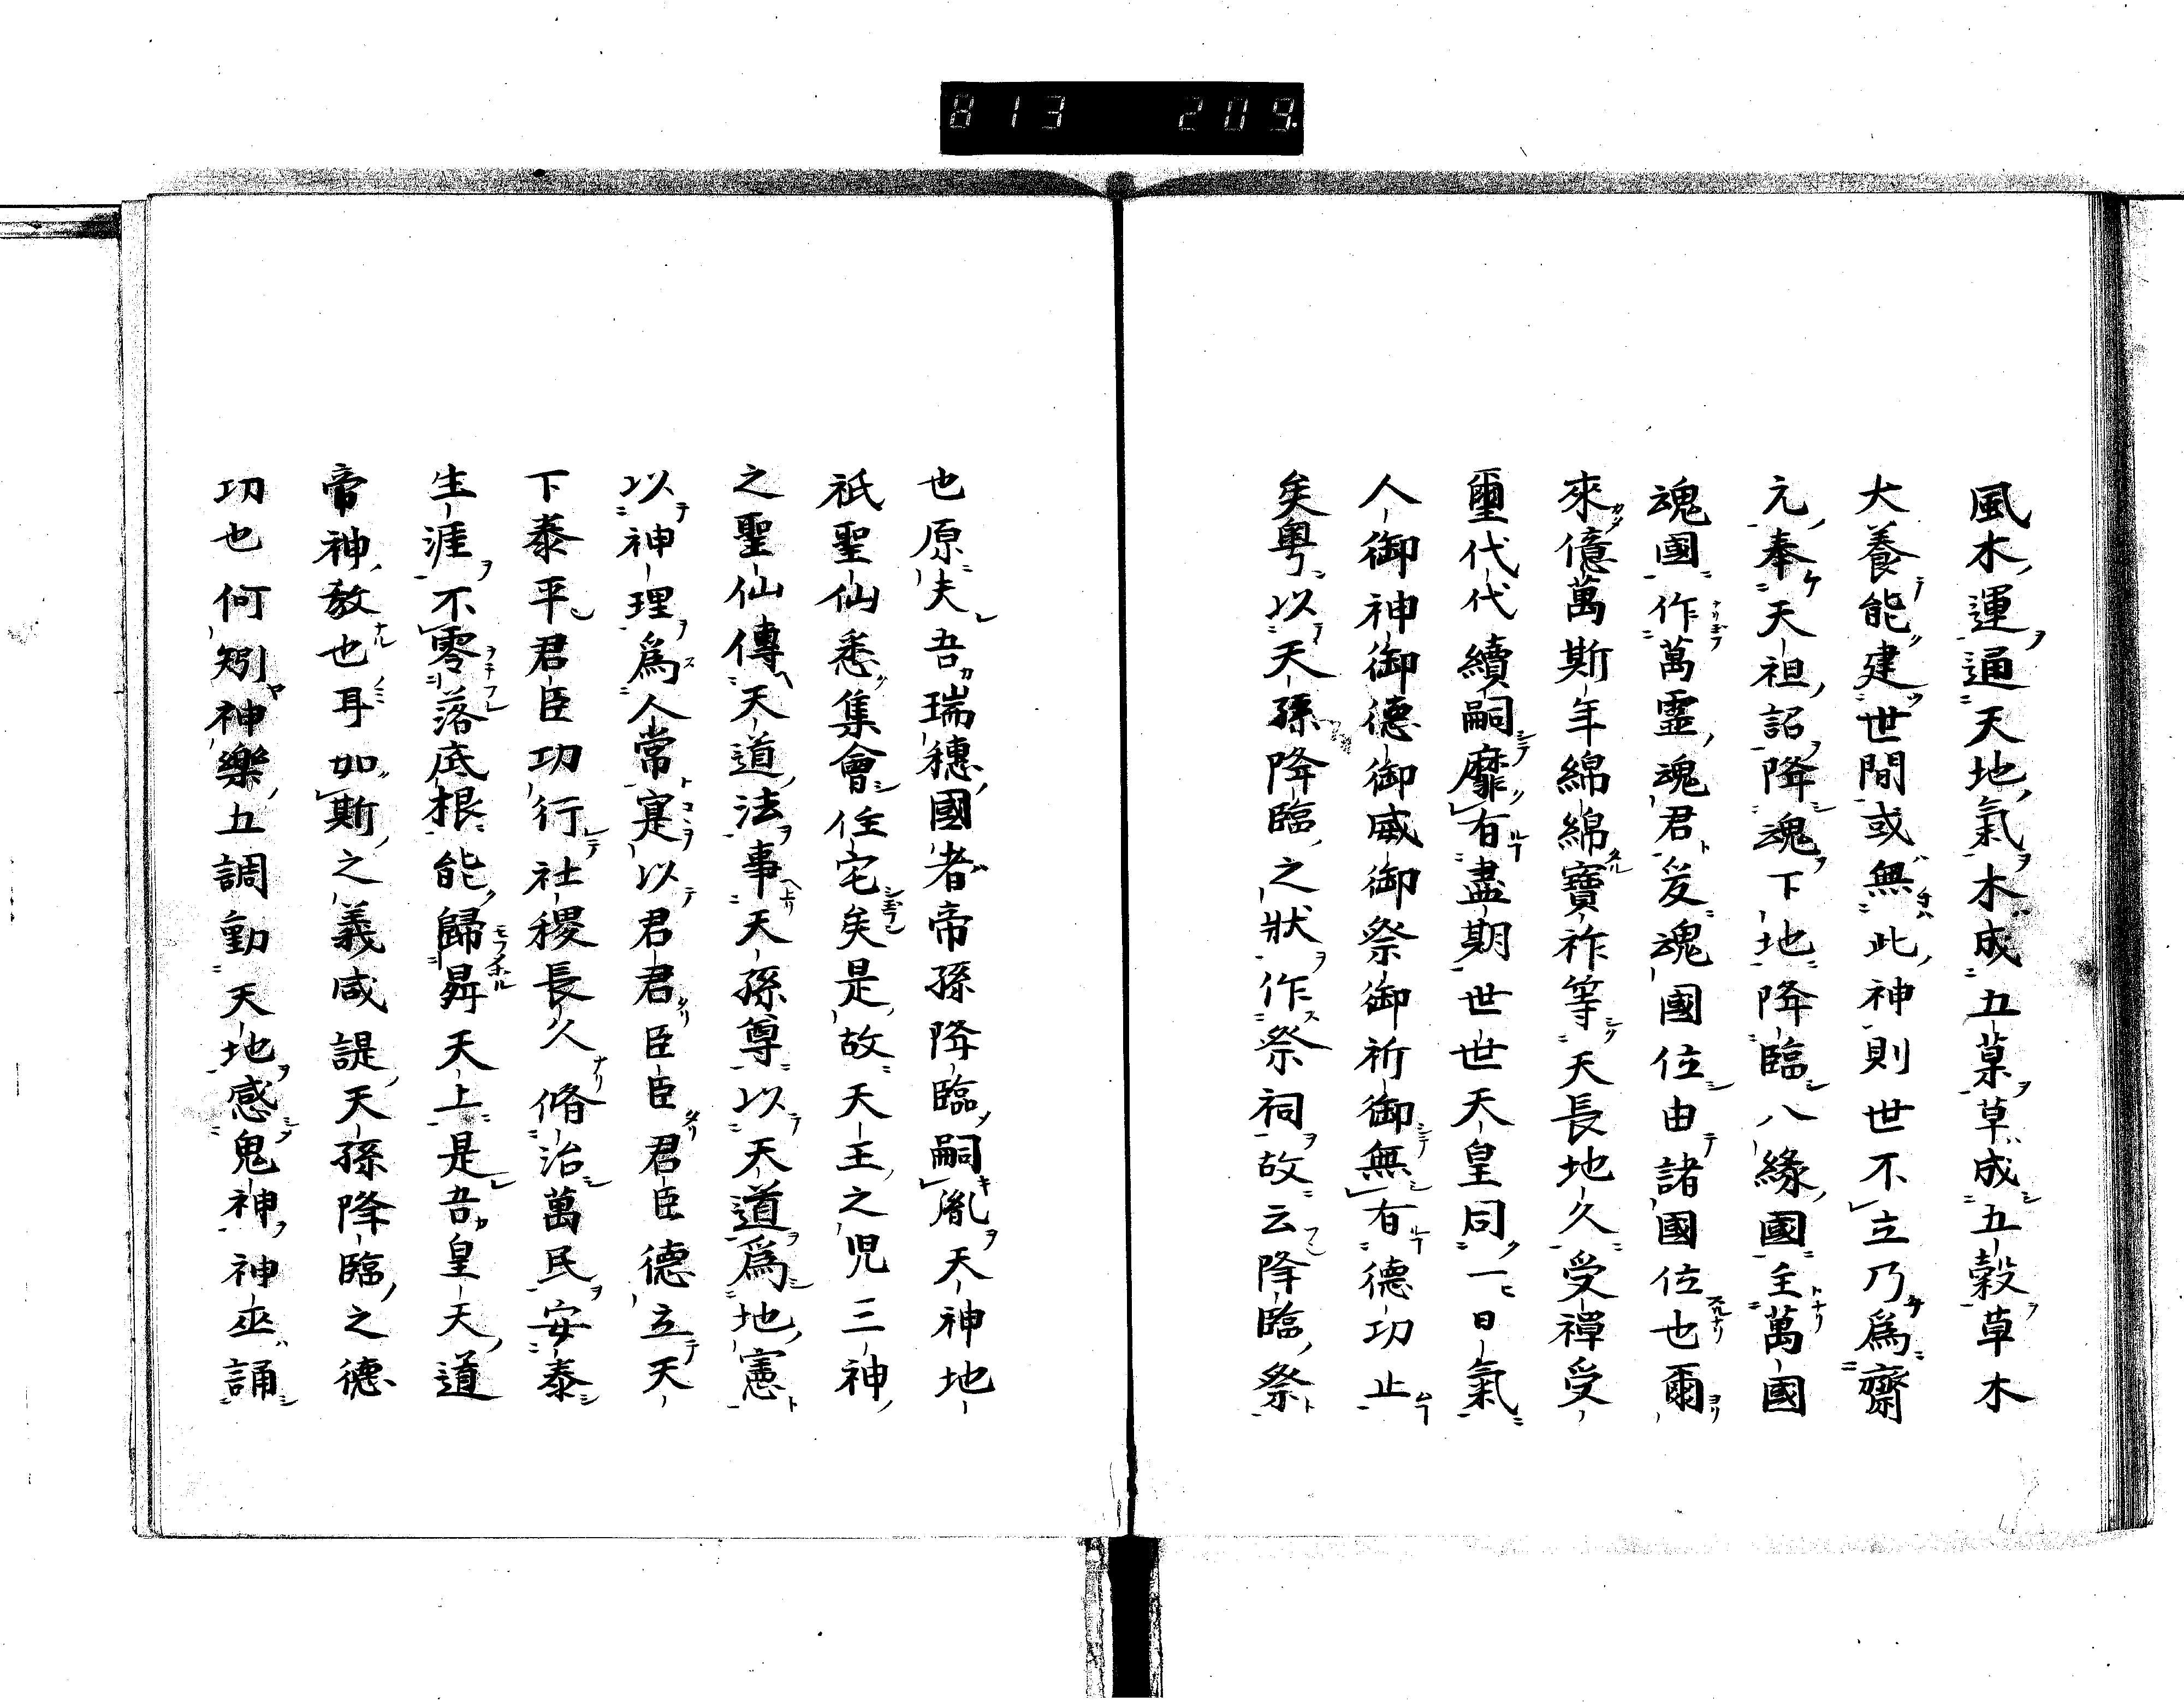 813 209
風木運通天地氣木成五菓草成五穀草木
大養能建世間或無此神則世不立乃爲齋
元奉天祖詔降魂下地降臨八緣國主萬國
魂國作萬靈魂君爰魂國位由諸國位也爾
來億萬斯年綿綿寶祚等天長地久受禪受
璽代代續嗣靡有盡期世世天皇同一日氣
人御神御德御威御祭御祈御無有德功止
矣粤以天孫降臨之狀作祭祠故云降臨祭
也原夫吾瑞穗國者帝孫降臨嗣胤天神地
祇聖仙悉集會住宅矣是故天王之児三神
之聖仙傳天道法事天孫尊以天道爲地憲
以神理爲人常寔以君君臣臣君臣德立天
下泰平君臣功行社稷長久脩治萬民安泰
生涯不零落底根能歸昇天上是吾皇天道
帝神敎也耳如斯之義咸諟天孫降臨之德
功也何矧神樂五調動天地感鬼神神巫誦